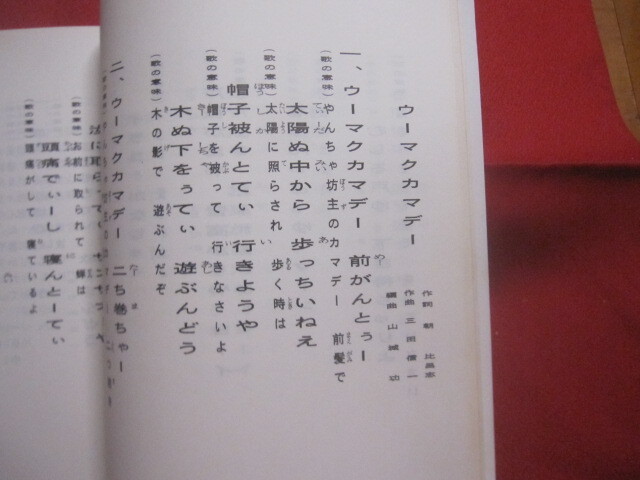 ウーマクカマデー
作詞 朝 比呂志
作曲 三田信一
編曲 山城 功
一、ウーマクカマデー 前がんとぅー
(歌の意味) やんちゃ坊主のカマデー 前髪で
太陽ぬ中から 歩っちいねえ
(歌の意味) 太陽に照らされ 歩く時は
帽子被んとてぃ 行きようや
(歌の意味) 帽子を被って 行きなさいよ
木ぬ下をぅてぃ 遊ぶんどう
(歌の意味) 木の影で 遊ぶんだぞ
二、ウーマクカマデー 二ち巻ちゃー
(歌の意味) お前に取られて 蝉は
頭痛でぃーし 寝んとーてぃ
(歌の意味) 頭痛がして 寝ているよ